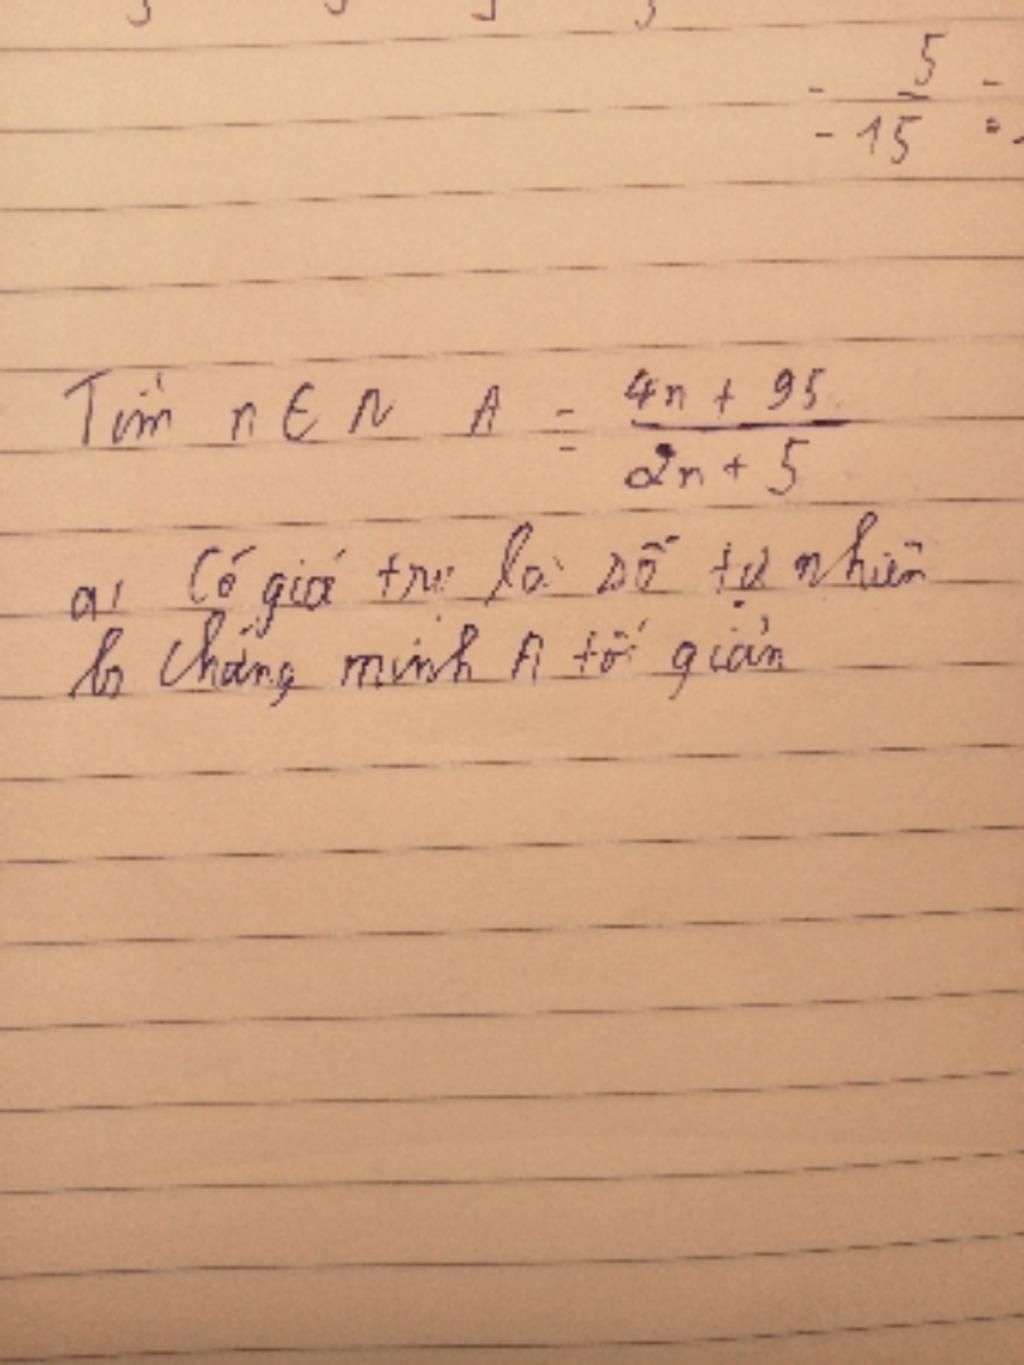 5
- 15
Tìm n ∈ N A = 4n + 95 / 2n + 5
a, Có giá trị là số tự nhiên
b, Chứng minh A tối giản